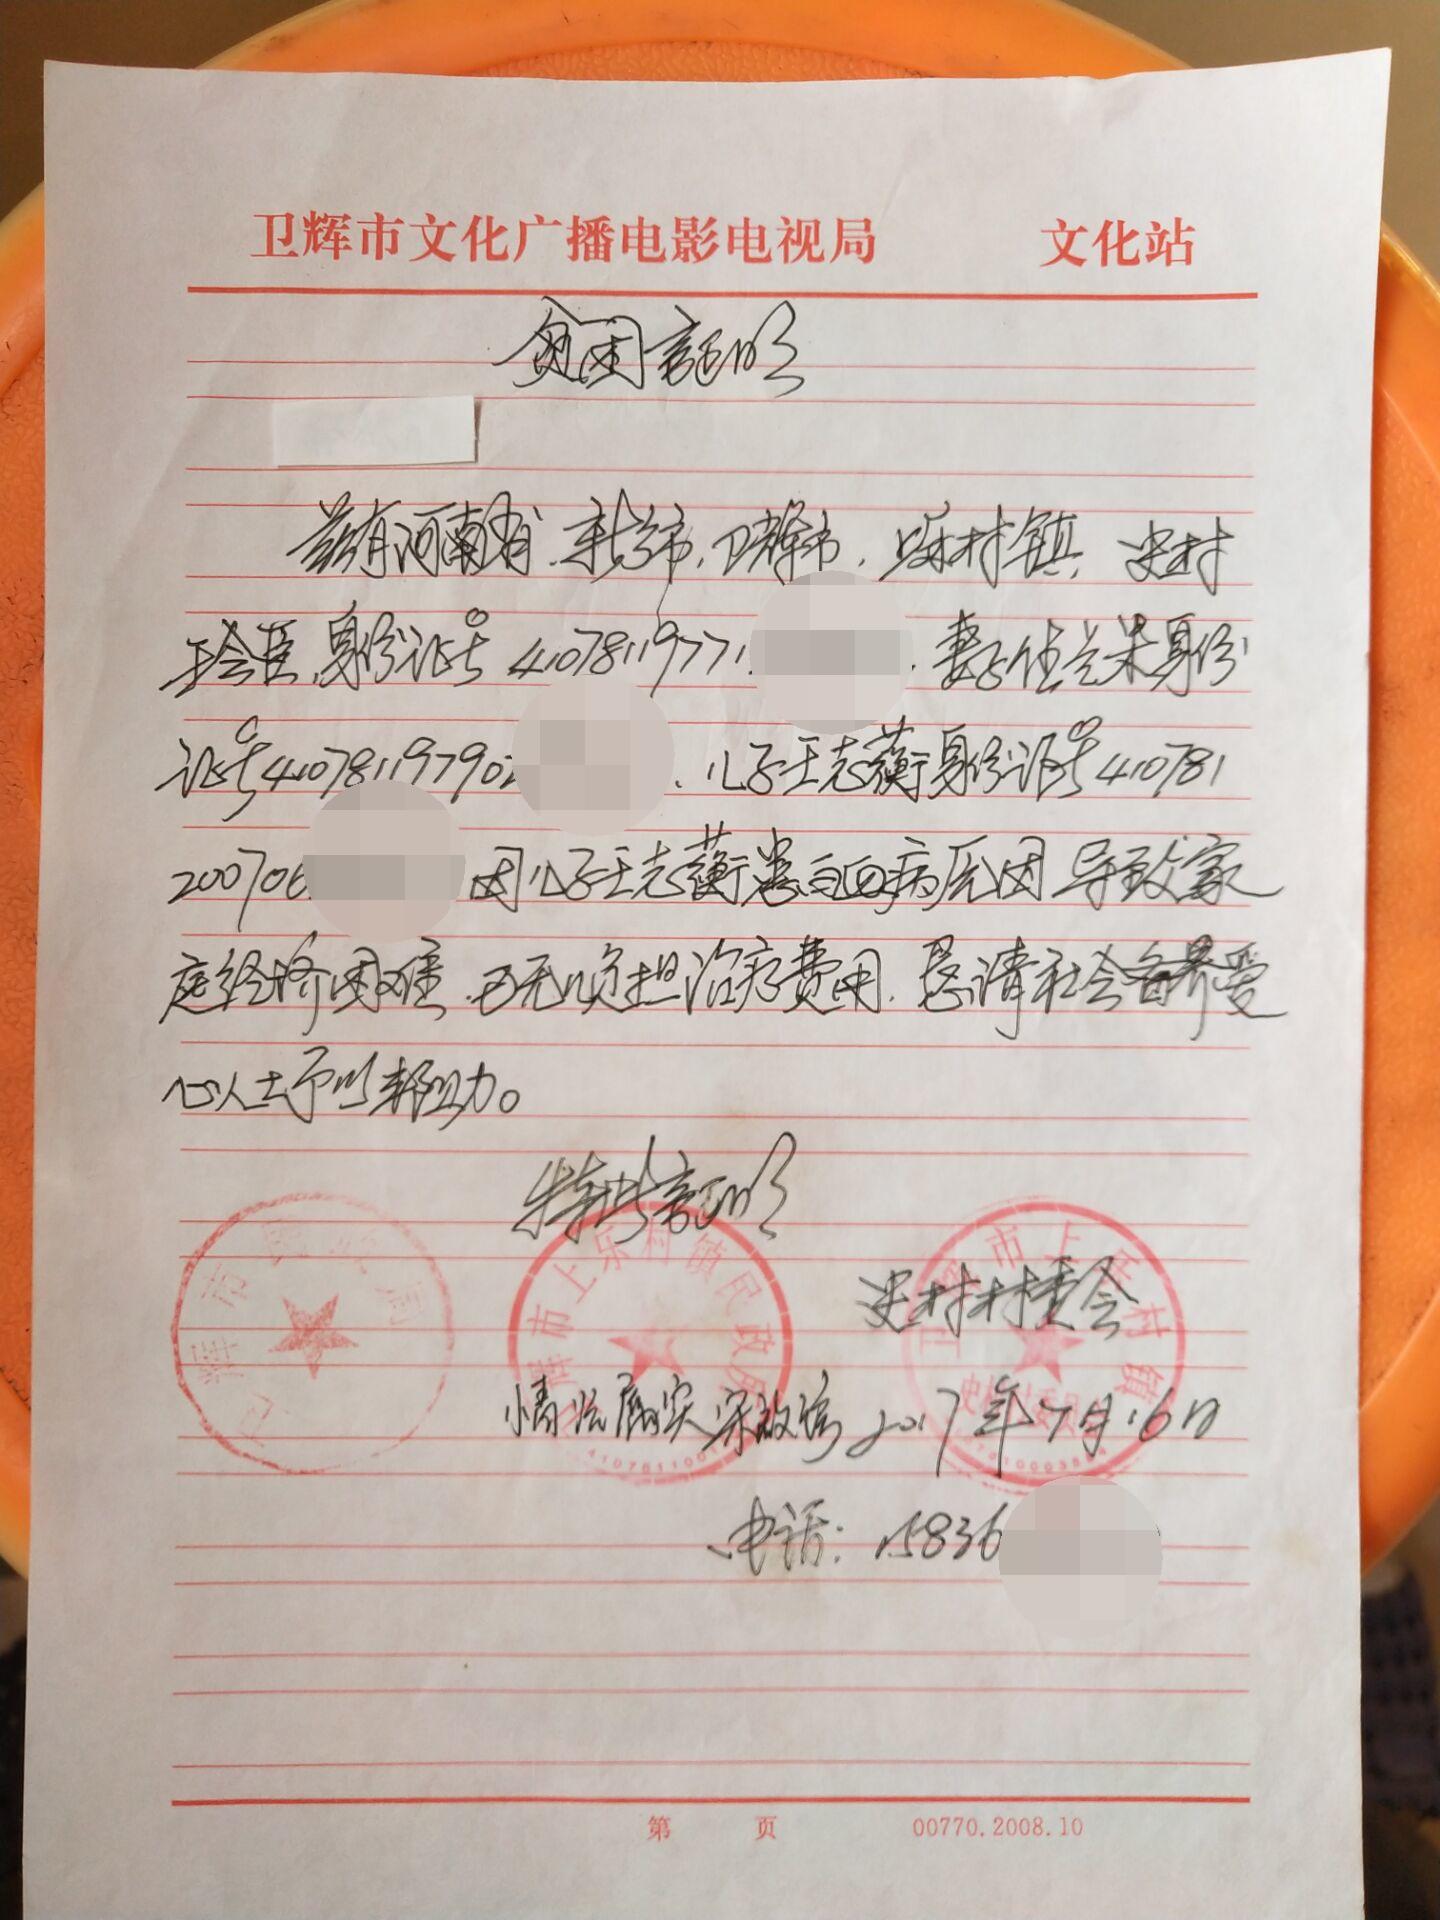 卫辉市文化广播电影电视局 文化站
贫困证明
兹有河南省.新乡市.卫辉市.上乐村镇.史村
身份证号41078119771 .妻子 身份
证号410781197902 .儿子王志蘅身份证号410781
200706 因儿子王志蘅患白血病原因导致家
庭经济困难.再无力负担治疗费用.恳请社会各界爱
心人士予以帮助。
特此证明
史村村委会
情况属实 2017年7月16日
电话:15836
卫辉市民政局
卫辉市上乐村镇民政所
卫辉市上乐村镇
第 页 00770.2008.10